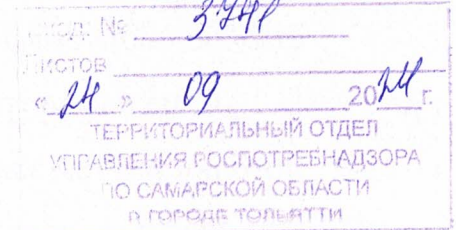 ВХОД. №
Листов
« 24 » 09 2024 г.
ТЕРРИТОРИАЛЬНЫЙ ОТДЕЛ
УПРАВЛЕНИЯ РОСПОТРЕБНАДЗОРА
ПО САМАРСКОЙ ОБЛАСТИ
В ГОРОДЕ ТОЛЬЯТТИ